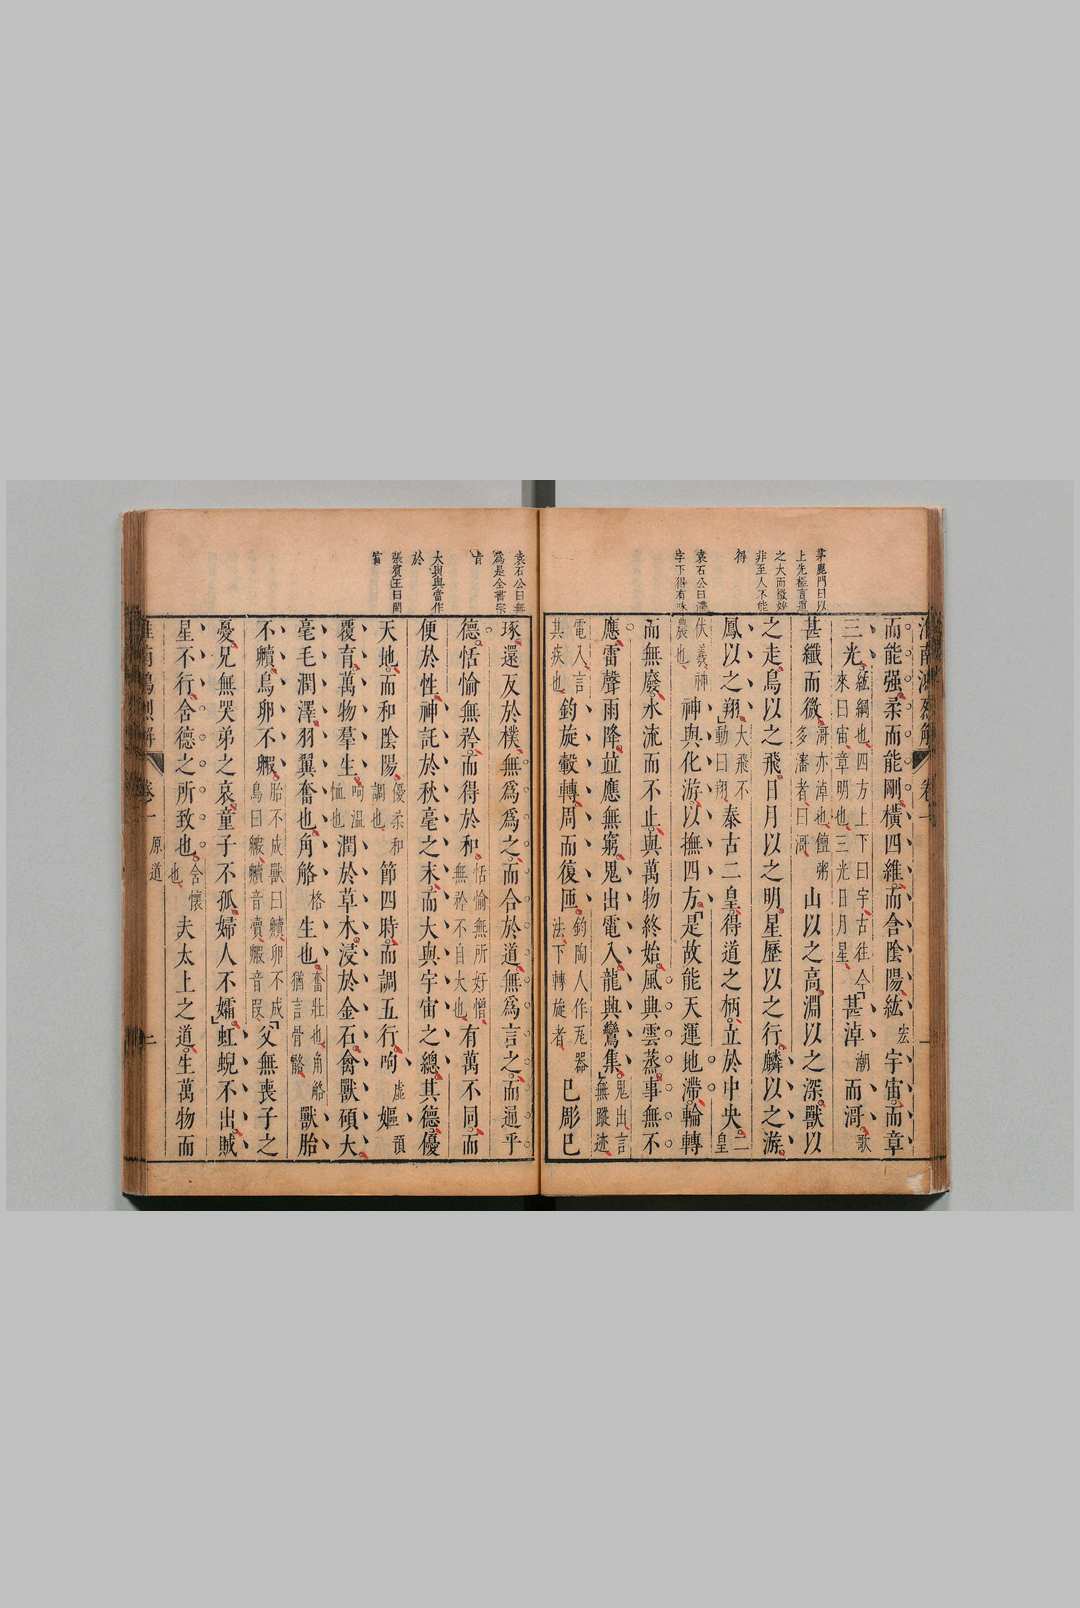 茅鹿門曰以
上先極言道
之大而微妙
非至人不能
得
袁石公曰滯
字下得有味
淮南鴻烈解 卷一
而能强柔而能剛橫四維而含陰陽紘宏宇宙而章
三光紘綱也四方上下曰宇古往今來曰宙章明也三光日月星甚淖潮而滒歌
甚纖而微滒亦淖也饘粥多瀋者曰滒山以之高淵以之深獸以
之走鳥以之飛日月以之明星歷以之行麟以之游
鳳以之翔大飛不動曰翔泰古二皇得道之柄立於中央二皇
伏羲神農也神與化游以撫四方是故能天運地滯輪轉
而無廢水流而不止與萬物終始風興雲蒸事無不
應雷聲雨降竝應無窮鬼出電入龍興鸞集鬼出言無蹤迹
電入言其疾也鈞旋轂轉周而復匝鈞陶人作瓦器法下轉旋者已彫已
袁石公曰無
爲是全書宗
旨
大與與當作
於
張賓王曰閎
篇
琢還反於樸無爲爲之而合於道無爲言之而通乎
德恬愉無矜而得於和恬愉無所好憎無矜不自大也有萬不同而
便於性神託於秋毫之末而大與宇宙之總其德優
天地而和陰陽優柔和調也節四時而調五行呴虛嫗預
覆育萬物羣生呴温恤也潤於草木浸於金石禽獸碩大
毫毛潤澤羽翼奮也角觡格生也奮壯也角觡猶言骨骼獸胎
不贕鳥卵不毈胎不成獸曰贕卵不成鳥曰毈贕音䝼毈音叚父無喪子之
憂兄無哭弟之哀童子不孤婦人不孀虹蜺不出賊
星不行含德之所致也含懷也夫太上之道生萬物而
淮南鴻烈解 卷一 原道 二